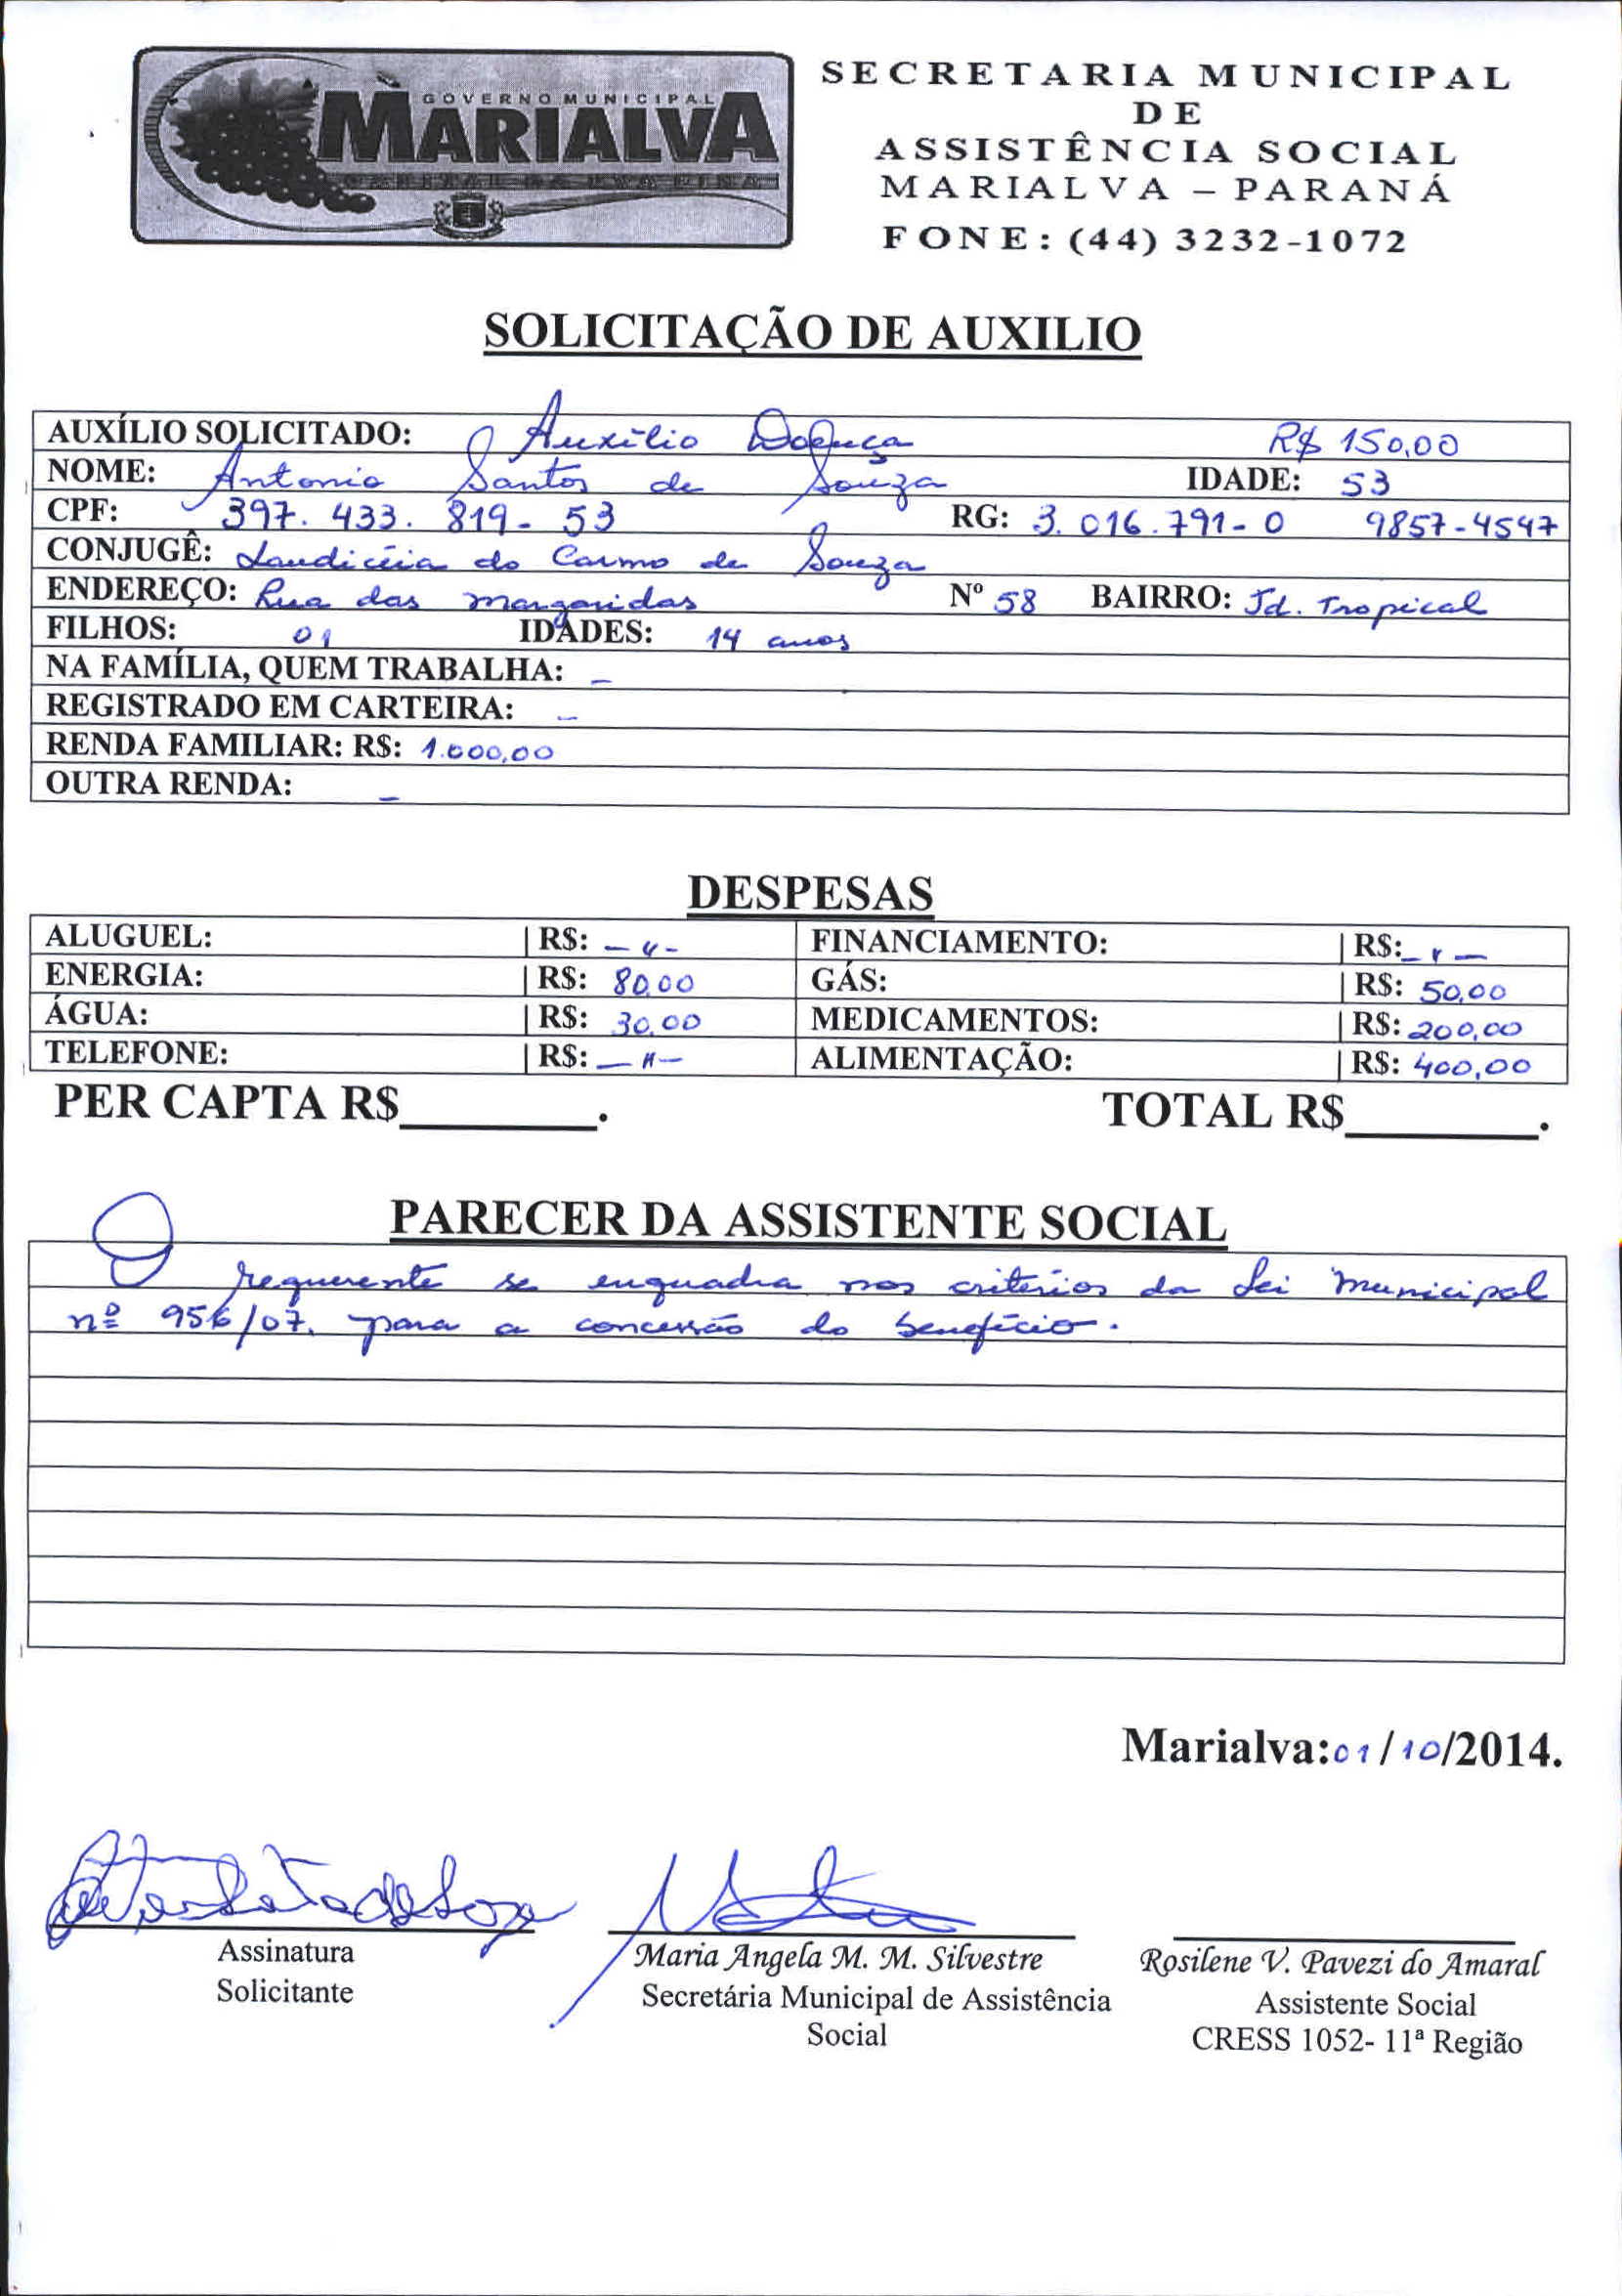 GOVERNO MUNICIPAL
MARIALVA
SECRETARIA MUNICIPAL
DE
ASSISTÊNCIA SOCIAL
MARIALVA – PARANÁ
FONE: (44) 3232-1072
SOLICITAÇÃO DE AUXILIO
AUXÍLIO SOLICITADO: Auxílio Doença R$ 150,00
NOME: Antonio Santos de Souza IDADE: 53
CPF: 397.433.819-53 RG: 3.016.791-0 9857-4547
CONJUGÊ: Laudicéia do Carmo de Souza
ENDEREÇO: Rua das margaridas Nº 58 BAIRRO: Jd. Tropical
FILHOS: 01 IDADES: 14 anos
NA FAMÍLIA, QUEM TRABALHA: –
REGISTRADO EM CARTEIRA: –
RENDA FAMILIAR: R$: 1.000,00
OUTRA RENDA: –
DESPESAS
ALUGUEL: | R$: — " - FINANCIAMENTO: | R$: — " —
ENERGIA: | R$: 80,00 GÁS: | R$: 50,00
ÁGUA: | R$: 30,00 MEDICAMENTOS: | R$: 200,00
TELEFONE: | R$: — " — ALIMENTAÇÃO: | R$: 400,00
PER CAPTA R$________. TOTAL R$________.
PARECER DA ASSISTENTE SOCIAL
O requerente se enquadra nos critérios da Lei Municipal
nº 956/07. para a concessão do benefício.
Marialva: 01/10/2014.
Assinatura
Solicitante
Maria Angela M. M. Silvestre
Secretária Municipal de Assistência
Social
Rosilene V. Pavezi do Amaral
Assistente Social
CRESS 1052- 11ª Região